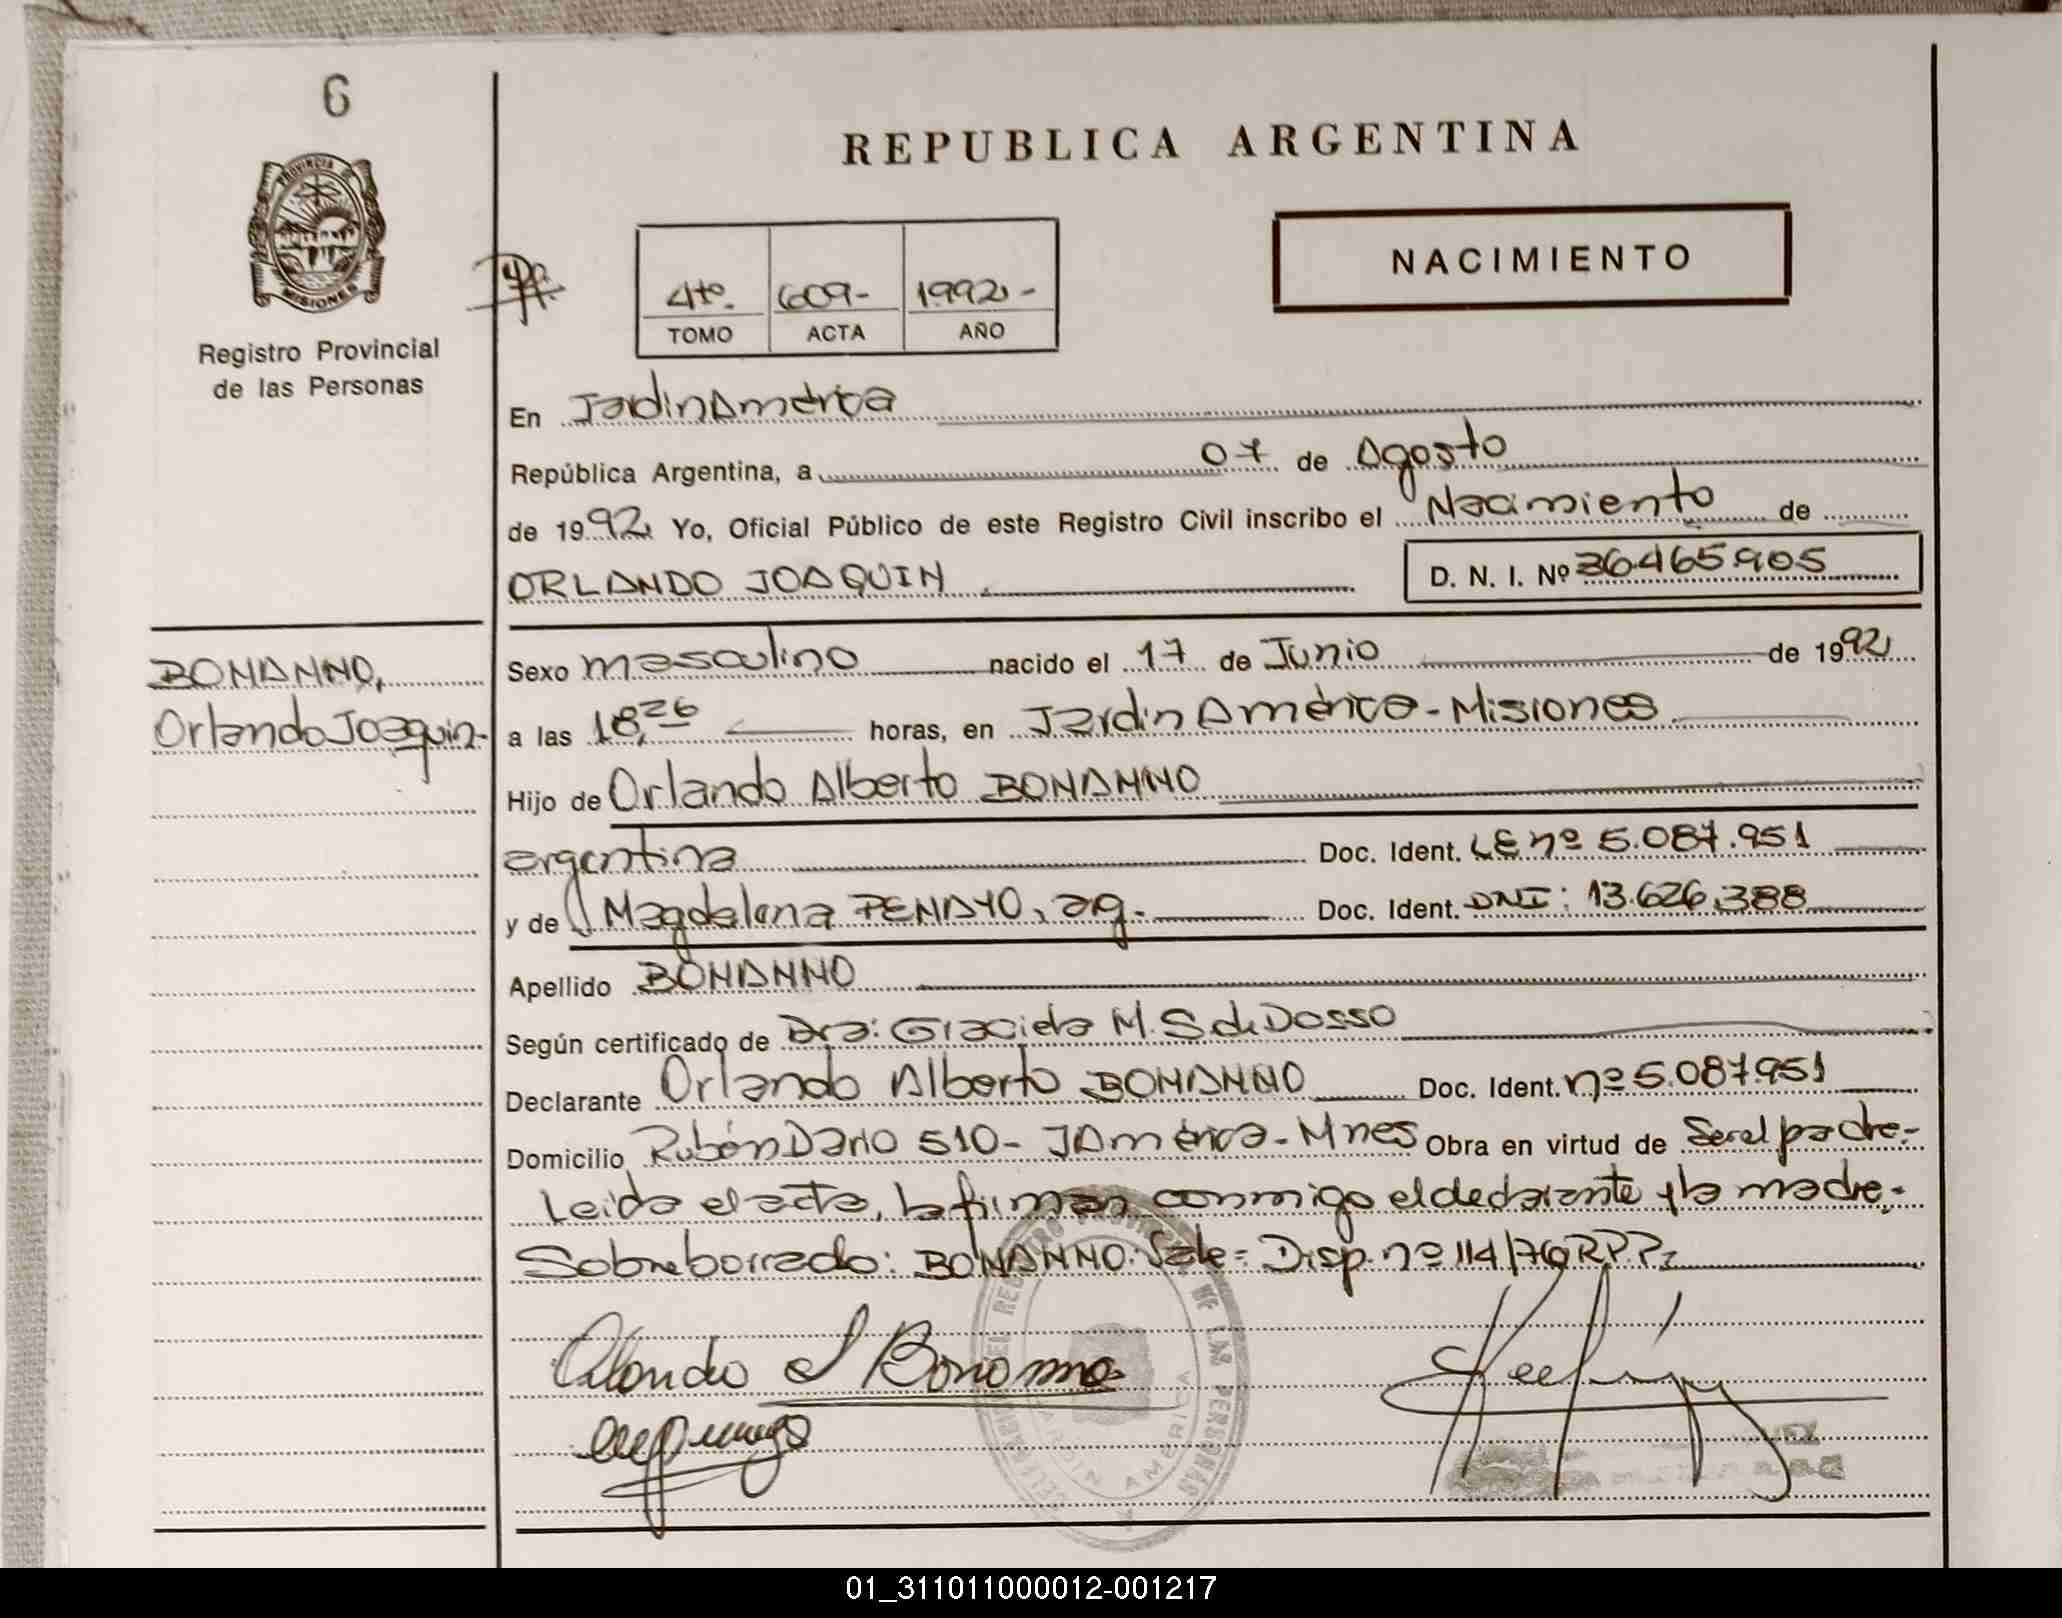 6
REPUBLICA ARGENTINA
PROVINCIA
MISIONES
Registro Provincial
de las Personas
4to. 609- 1992-
TOMO ACTA AÑO
NACIMIENTO
En Jardin América
República Argentina, a 07 de Agosto
de 1992 Yo, Oficial Público de este Registro Civil inscribo el Nacimiento de
ORLANDO JOAQUIN D. N. I. Nº 36.465.905
BONANNO,
Orlando Joaquin-
Sexo masculino nacido el 17 de Junio de 1992
a las 18,26 horas, en Jardin América-Misiones
Hijo de Orlando Alberto BONANNO
argentina Doc. Ident. LE nº 5.087.951
y de Magdalena PENAYO, arg.- Doc. Ident. DNI: 13.626.388
Apellido BONANNO
Según certificado de Dra: Graciela M. S. de Dosso
Declarante Orlando Alberto BONANNO Doc. Ident. nº 5.087.951
Domicilio Rubén Dario 510- J América-Mnes Obra en virtud de Ser el padre.-
Leida el acta, la firman conmigo el declarante y la madre.-
Sobreborrado: BONANNO. Vale= Disp. nº 114/76 R.P.P.
Orlando A Bonanno
REGISTRO PROVINCIAL DE LAS PERSONAS
JARDIN AMERICA
01_311011000012-001217